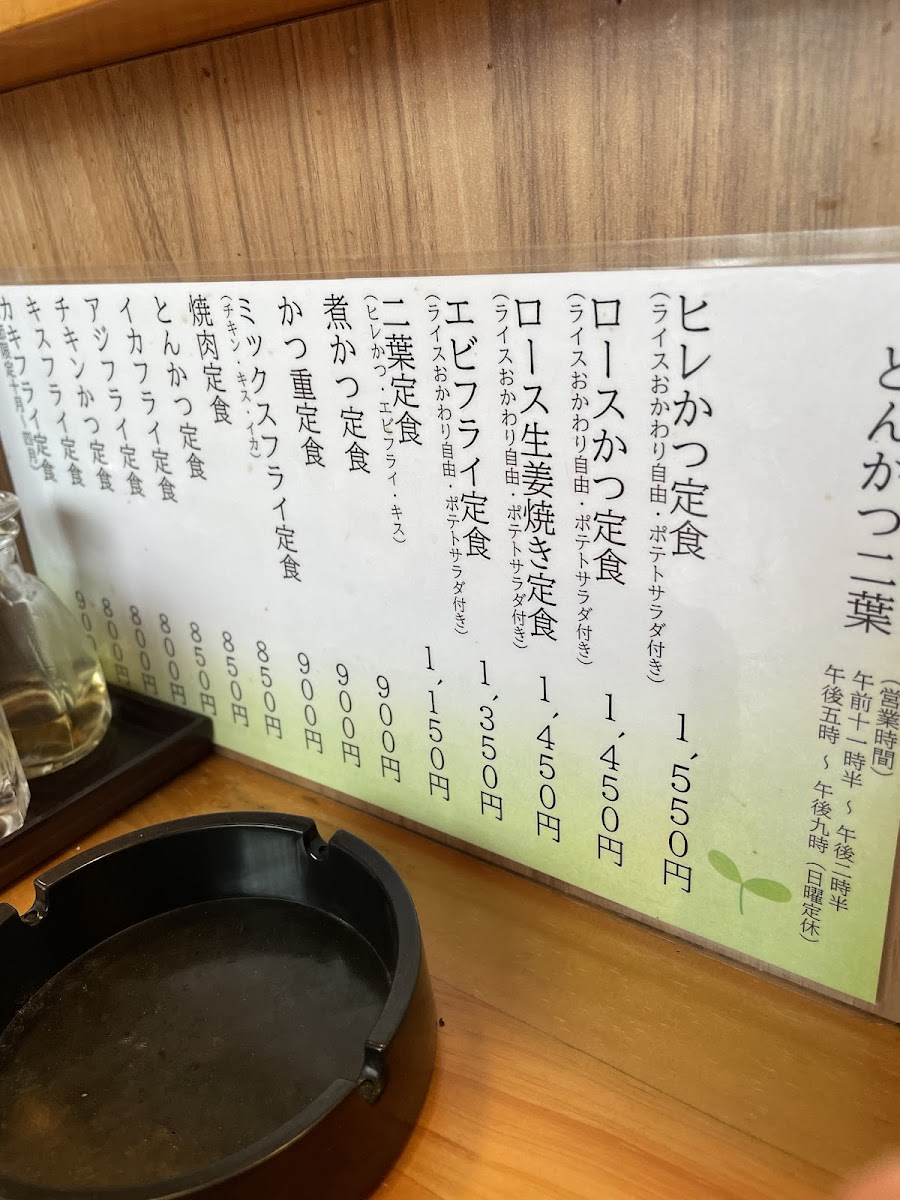 とんかつ二葉
(営業時間)
午前十一時半 ～ 午後二時半
午後五時 ～ 午後九時 (日曜定休)
ヒレかつ定食 1,550円
(ライスおかわり自由・ポテトサラダ付き)
ロースかつ定食 1,450円
(ライスおかわり自由・ポテトサラダ付き)
ロース生姜焼き定食 1,450円
(ライスおかわり自由・ポテトサラダ付き)
エビフライ定食 1,350円
(ライスおかわり自由・ポテトサラダ付き)
二葉定食 1,150円
(ヒレかつ・エビフライ・キス)
煮かつ定食 900円
かつ重定食 900円
ミックスフライ定食 900円
(チキン・キス・イカ)
焼肉定食 850円
とんかつ定食 850円
イカフライ定食 850円
アジフライ定食 800円
チキンかつ定食 800円
キスフライ定食 800円
カキフライ定食 900